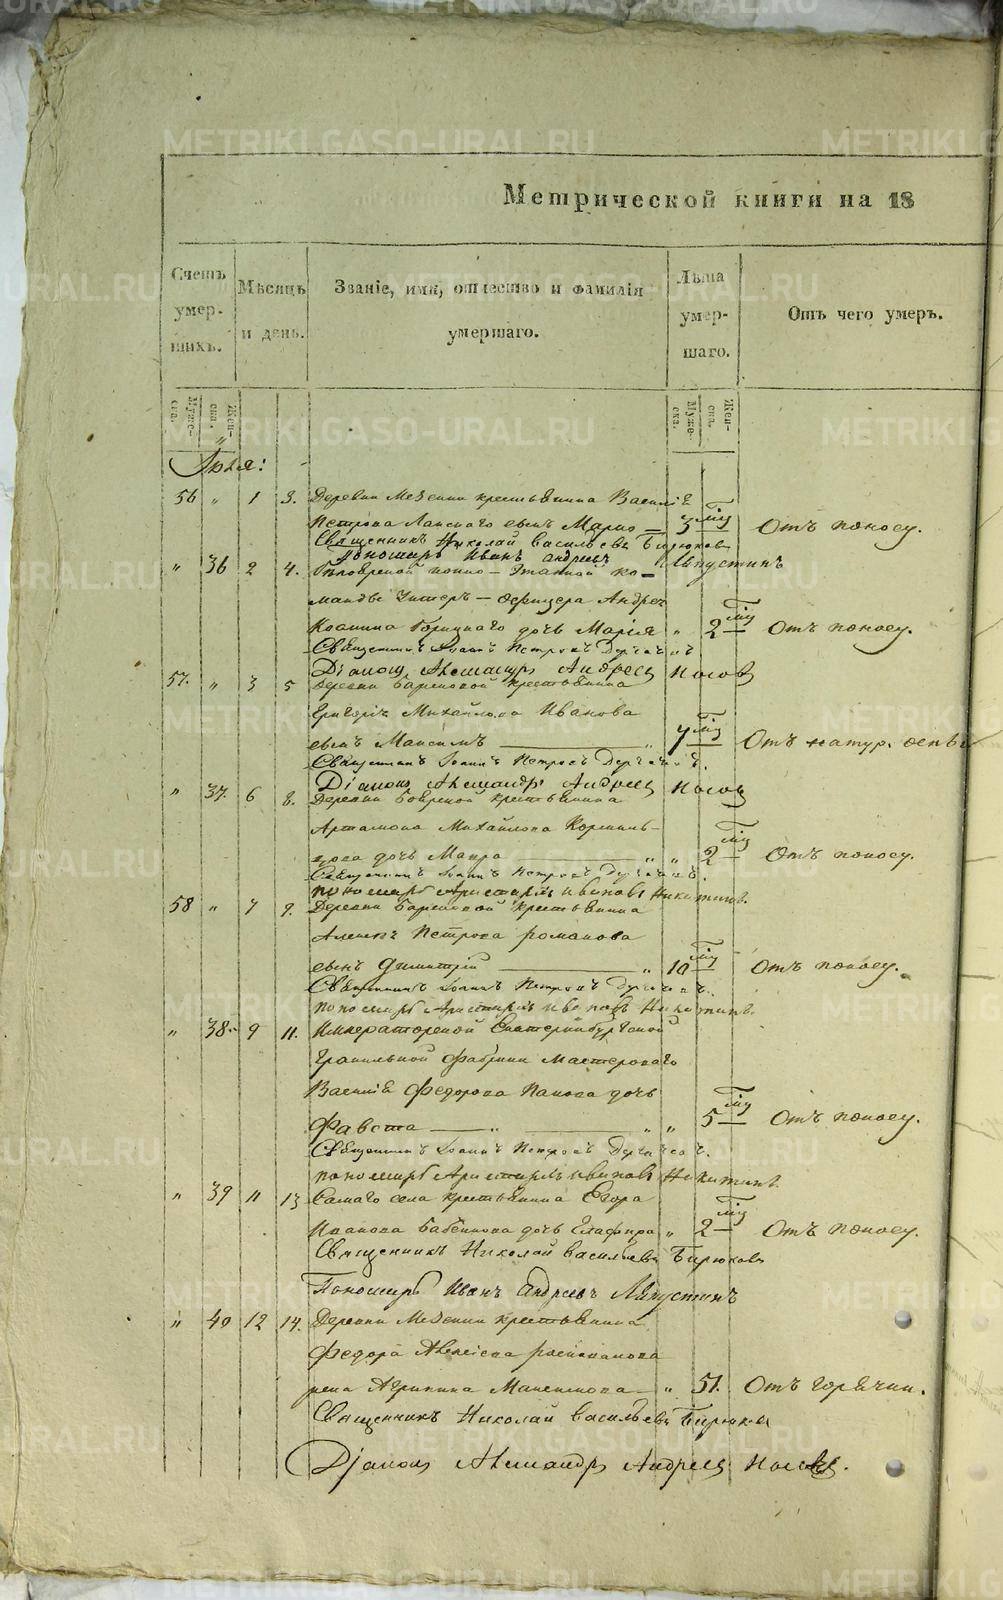 Метрической книги на 18
Счетъ умер-шихъ.
Мѣсяцъ и день.
Званіе, имя, отчество и фамилія умершаго.
Лѣта умер-шаго.
Отъ чего умеръ.
Муже-ска.
Жен-ска.
Муже-ска.
Жен-ска.
Іюля:
56 " 1 3. Деревни Мезенки крестьянина Василія
Петрова сынъ Марко — 3 Отъ поносу.
Священникъ Николай Васильевъ Бирюковъ
Пономарь Иванъ Андреевъ Ляпустинъ
" 36 2 4. Этапной ко-
манды Унтеръ-Офицера Андрея
дочь Марія " 2 Отъ поносу.
Священникъ Іоаннъ Петровъ
Діаконъ Александръ Андреевъ Носовъ
57. " 3 5 Деревни крестьянина
Григорія Михайлова Иванова
сынъ Максимъ " 7 Отъ натур. оспы
Священникъ Іоаннъ Петровъ
Діаконъ Александръ Андреевъ Носовъ
" 37. 6 8. Деревни крестьянина
Артамона Михайлова Корниль-
цова дочь Мавра " " 2 Отъ поносу.
Священникъ Іоаннъ Петровъ
пономарь Аристархъ Ивановъ Никитинъ.
58 " 7 9. Деревни крестьянина
Алексѣя Петрова Романова
сынъ Димитрій " 10 Отъ поносу.
Священникъ Іоаннъ Петровъ
пономарь Аристархъ Ивановъ Никитинъ.
" 38. 9 11. Императорской Екатеринбургской
Гранильной Фабрики Мастероваго
Василія Федорова Панова дочь
Фавста — " " " 5 Отъ поносу.
Священникъ Іоаннъ Петровъ
пономарь Аристархъ Ивановъ Никитинъ.
" 39 11 13 Самаго села крестьянина Егора
Иванова Бабенкова дочь Глафира " 2 Отъ поносу.
Священникъ Николай Васильевъ Бирюковъ
Пономарь Иванъ Андреевъ Ляпустинъ
" 40 12 14. Деревни Мезенки крестьянина
Федора Алексѣева
жена Агрипина Максимова — " 51. Отъ горячки.
Священникъ Николай Васильевъ Бирюковъ
Діаконъ Александръ Андреевъ Носовъ.
METRIKI.GASO-URAL.RU